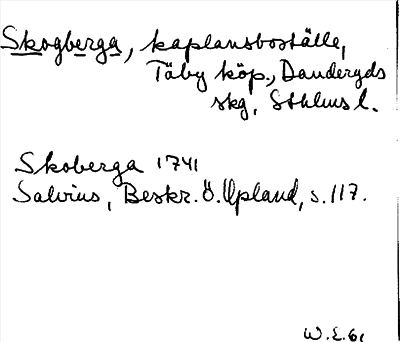 Skogberga, kaplansboställe,
Täby köp., Danderyds
skg, Sthlms l.
Skoberga 1741
Salvius, Beskr. Ö. Upland, s. 117.
W.E. 61